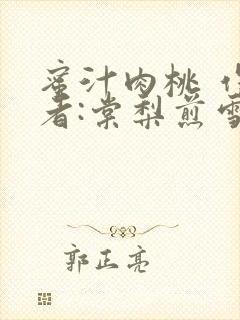 蜜汁肉桃 作
者:棠梨煎雪
郭正亮